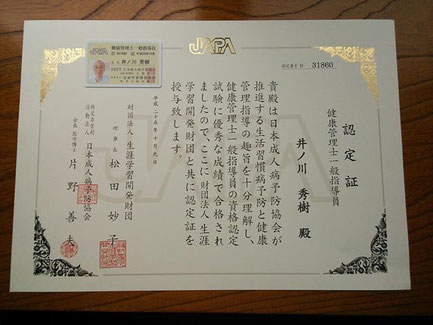 JAPA
認定番号 31860
認定証
健康管理士一般指導員
井ノ川 秀樹 殿
貴殿は日本成人病予防協会が
推進する生活習慣病予防と健康
管理指導の趣旨を十分理解し、
健康管理士一般指導員の資格認定
試験に優秀な成績で合格され
ましたので、ここに財団法人 生涯
学習開発財団と共に認定証を
授与致します。
平成二十五年十月九日
財団法人 生涯学習開発財団
理事長 松田妙子
特定非営利活動法人 日本成人病予防協会
会長 医学博士 片野善夫
JAPA
健康管理士一般指導員
井ノ川 秀樹